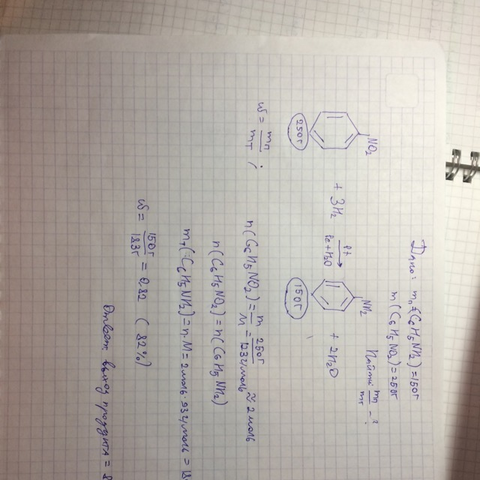 Дано: mп(C₆H₅NH₂)=150г
m(C₆H₅NO₂)=250г
Найти mп/mт - ?
NO₂ + 3H₂ Pt → Fe+H₂O NH₂ + 2H₂O
250г 150г
ω = mп/mт ;
n(C₆H₅NO₂) = m/M = 250г/123г/моль ≈ 2 моль
n(C₆H₅NO₂) = n(C₆H₅NH₂)
mт(C₆H₅NH₂) = n·M = 2моль·93г/моль = 18
ω = 150г/183г = 0,82 (82%)
Ответ: выход продукта = 8